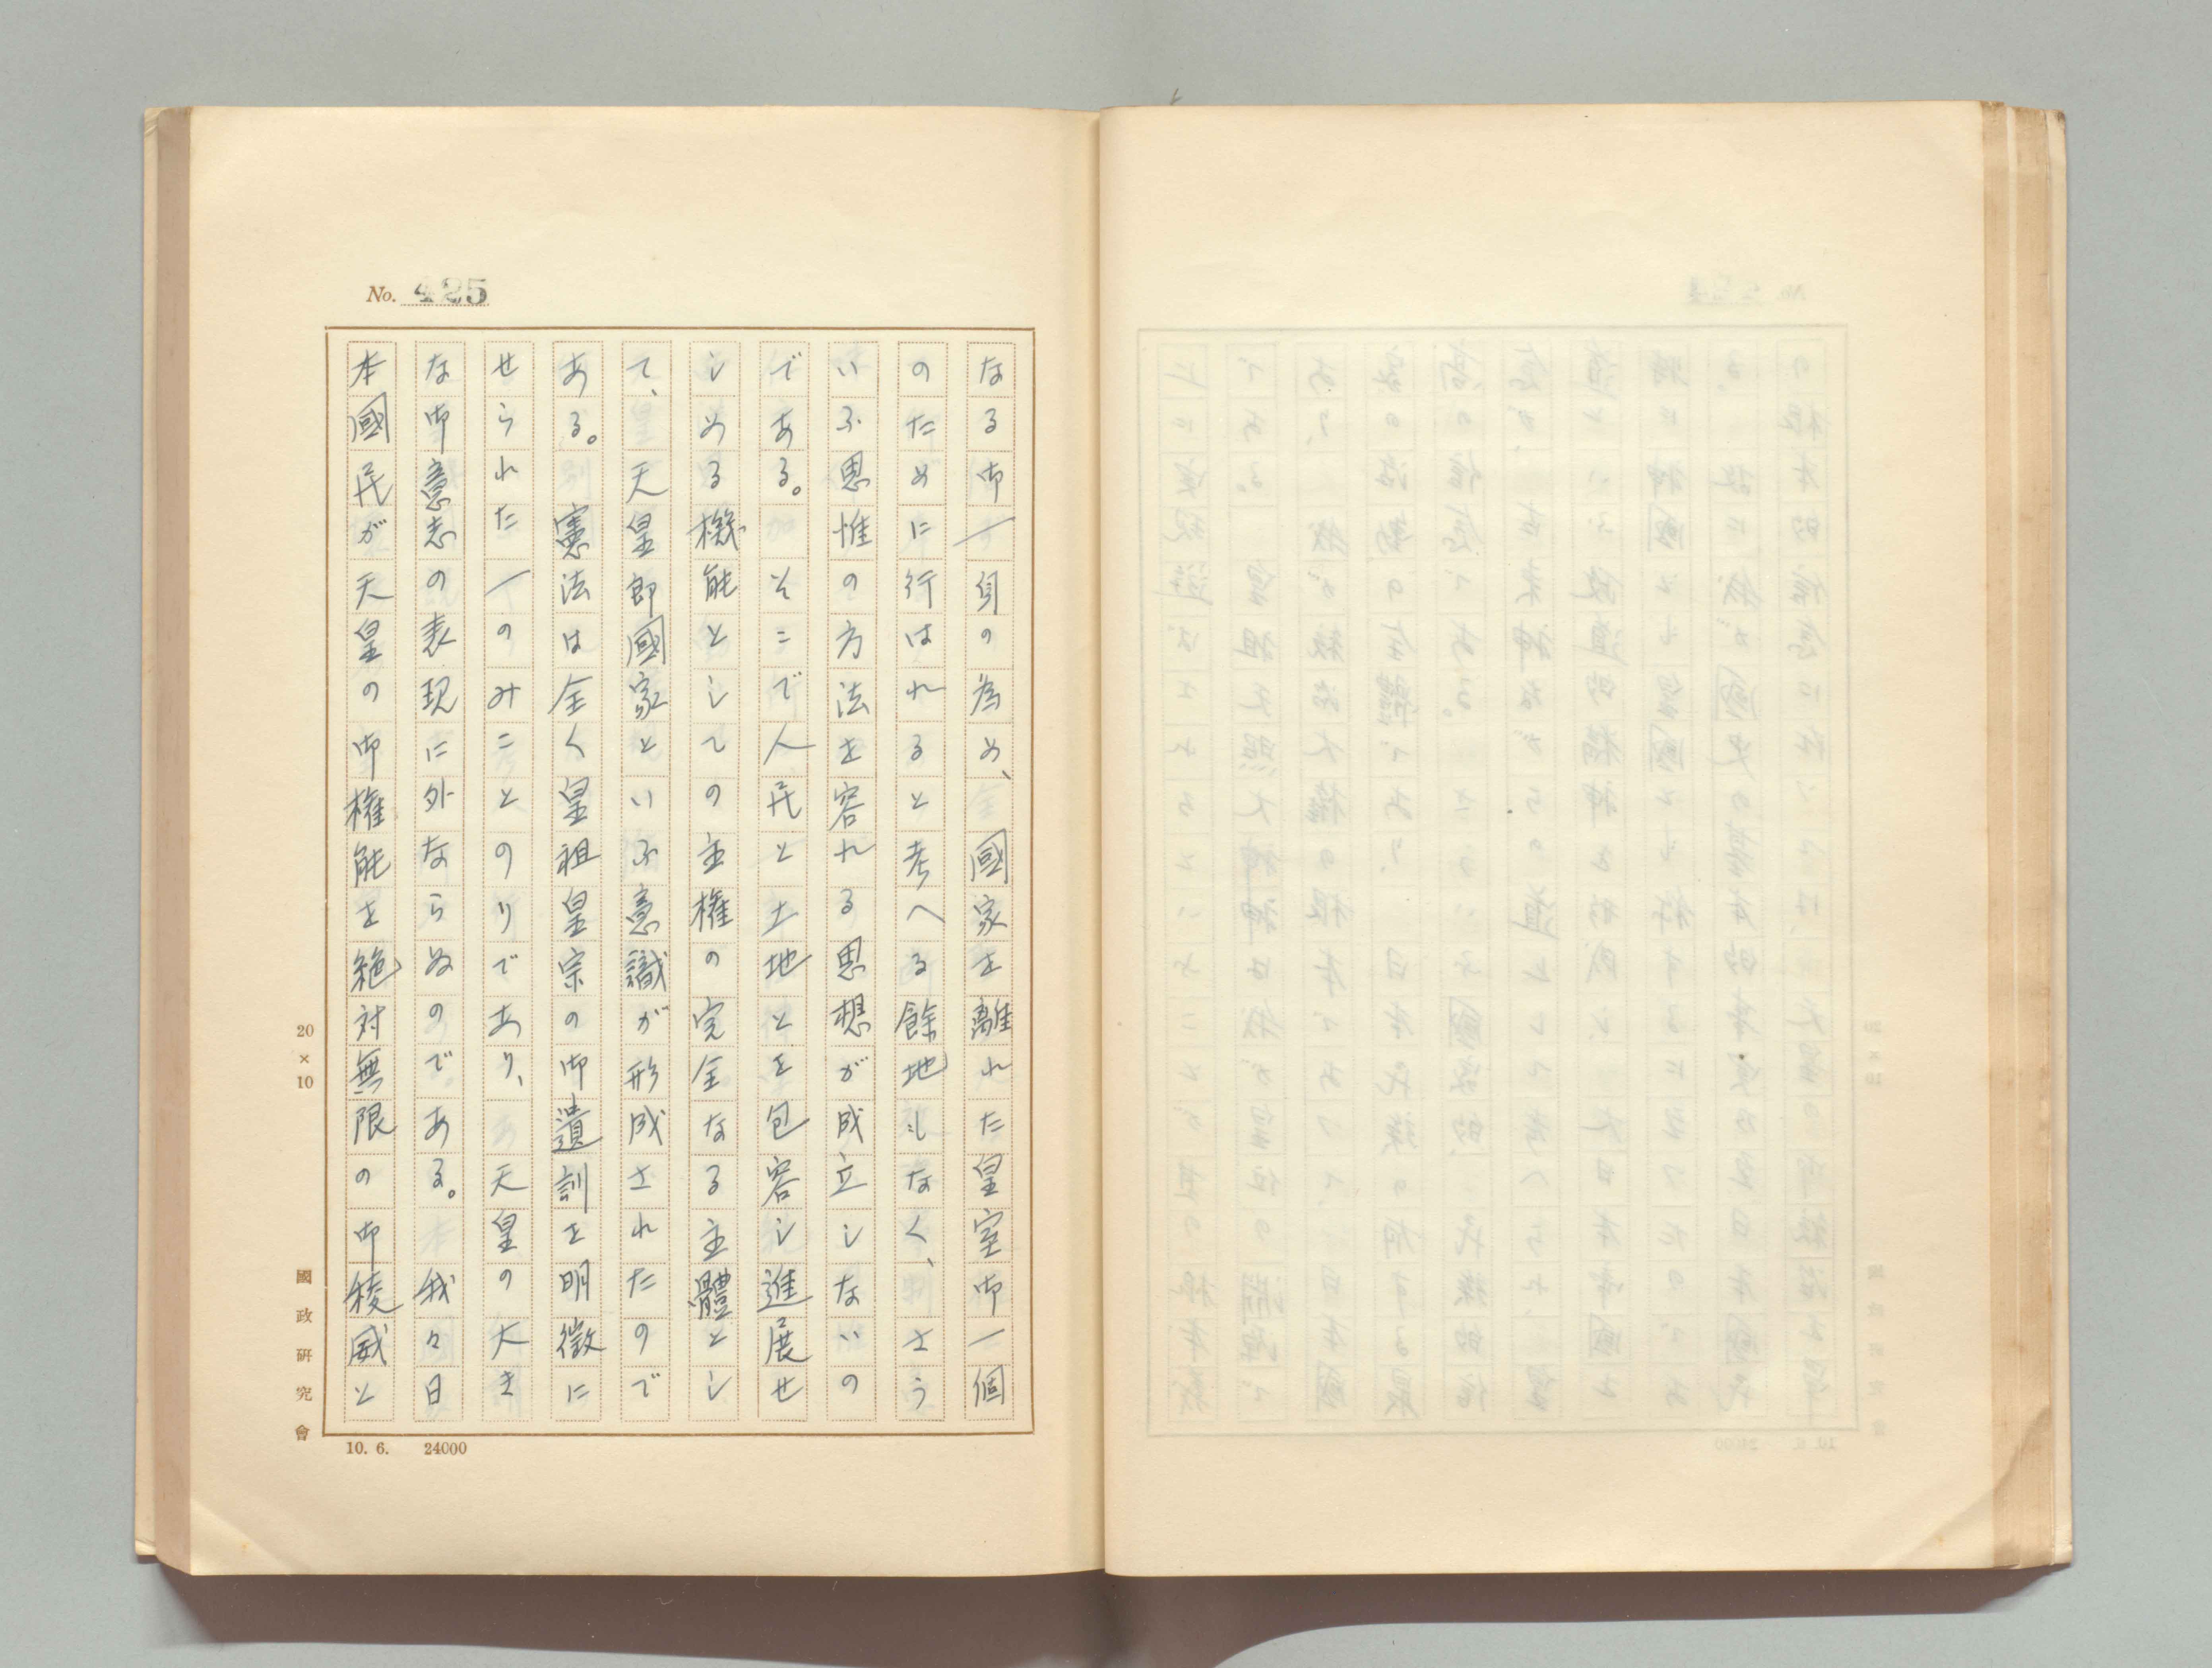 No. 425
なる御一身の為め、國家を離れた皇室御一個
のために行はれると考へる餘地もなく、さう
いふ思惟の方法を容れる思想が成立しないの
である。そこで人民と土地とを包容し進展せ
しめる機能としての主権の完全なる主體とし
て、天皇即國家といふ意識が形成されたので
ある。憲法は全く皇祖皇宗の御遺訓を明徴に
せられた一のみことのりであり、天皇の大き
な御意志の表現に外ならぬのである。我々日
本國民が天皇の御権能を絶対無限の御稜威と
20×10
國政研究會
10. 6. 24000